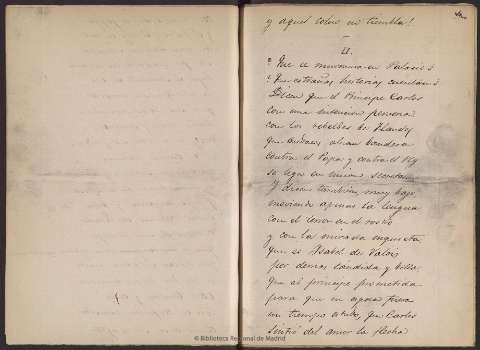 y aquel coloso no tiembla!
II.
¿Que se murmura en Palacio?
¿Que estrañas historias cuentan?
Dicen que el Principe Carlos
con una intencion perversa
con los rebeldes de Flandes
que audaces alzan bandera
contra el Papa y contra el Rey
se liga en union secreta.
Y dicen tambien, muy bajo
moviendo apenas la lengua
con el terror en el rostro
y con la mirada inquieta
que es Isabel de Valois
por demas candida y bella
que al principe prometida
para que su esposa fuera
un tiempo estubo, que Carlos
sintió del amor la flecha
© Biblioteca Regional de Madrid